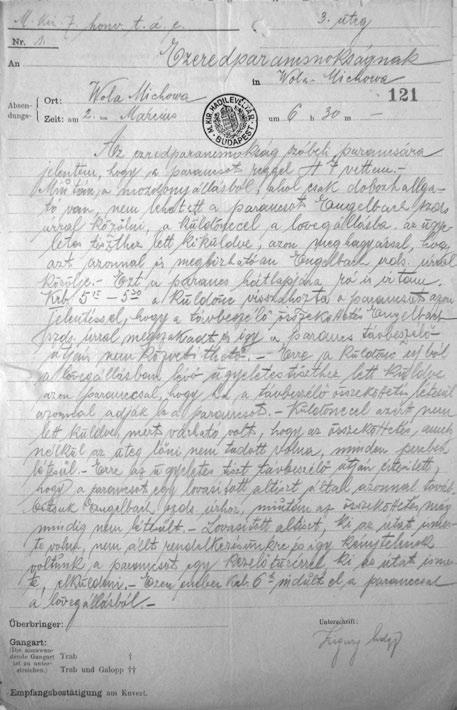 M. kir. 7. honv. t. á. e.
3. üteg
Nr. 1.
An Ezredparancsnokságnak
in Wola-Michowa
121
Absendungs-
Ort: Wola Michowa
Zeit: am 2. Marcius um 6 30 —
M. KIR. HADILEVÉLTÁR BUDAPEST
Az ezredparancsnokság szóbeli parancsára
jelentem, hogy a parancsot reggel át vettem. —
Miután a mozsonyállásból, ahol csak dobozhallga-
tó van, nem lehetett a parancsot Engelbach
úrral közölni, a küldönccel a lövegállásba, az ügye-
letes tiszthez lett kiküldve, azon meghagyással, hogy
azt azonnal és megbízhatóan Engelbach úrral
közölje. — Ezt a parancs hátlapjára rá is írtam.
Kb. 5 15 — 5 20 a küldönc visszahozta a parancsot azon
jelentéssel, hogy a távbeszélő összeköttetés Engelbach
úrral megszakadt és így a parancs távbeszélő
útján nem közvetíthető. — Erre a küldönc újból
a lövegállásban lévő ügyeletes tiszthez lett küldve
azon paranccsal, hogy ha a távbeszélő összeköttetés létesül
azonnal adják le a parancsot. — Küldönccel azért nem
lett küldve, mert várható volt, hogy az összeköttetés, amely
nélkül az üteg lőni nem tudott volna, minden percben
létesül. — Erre az ügyeletes tiszt távbeszélő útján értesített,
hogy a parancsot egy lovasított altiszt által azonnal továb-
bítsuk Engelbach úrhoz, miután az összeköttetés még
mindig nem létesült. — Lovasított altiszt, ki az utat ismer-
te volna, nem állt rendelkezésünkre és így kénytelenek
voltunk a parancsot egy kezelőtüzérrel, ki az utat ismer-
te, elküldeni. — Ezen ember kb. 6 h indult el a paranccsal
a lövegállásból. —
Überbringer:
Unterschrift:
Gangart:
(Die anzuwendende Gangart ist zu unterstreichen.)
Trab †
Trab und Galopp ††
Empfangsbestätigung am Kuvert.